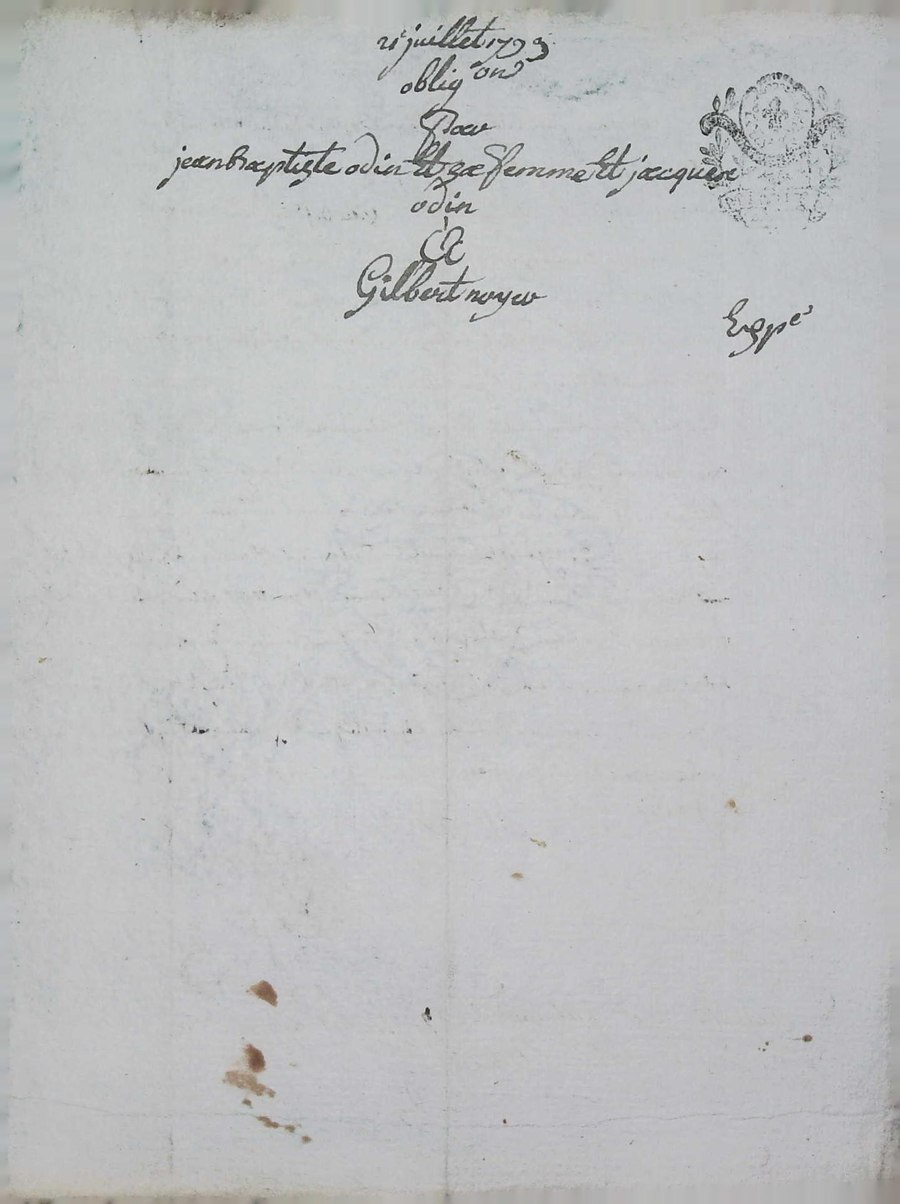 21 juillet 1793
obligon
par
jean baptiste odin et sa femme et jacques
odin
A
Gilbert noyer
Expé